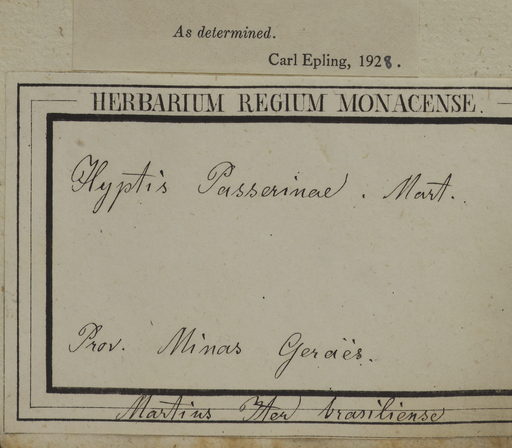 As determined.
Carl Epling, 1928.
HERBARIUM REGIUM MONACENSE.
Hyptis Passerinae. Mart.
Prov. Minas Geraës.
Martius Iter brasiliense